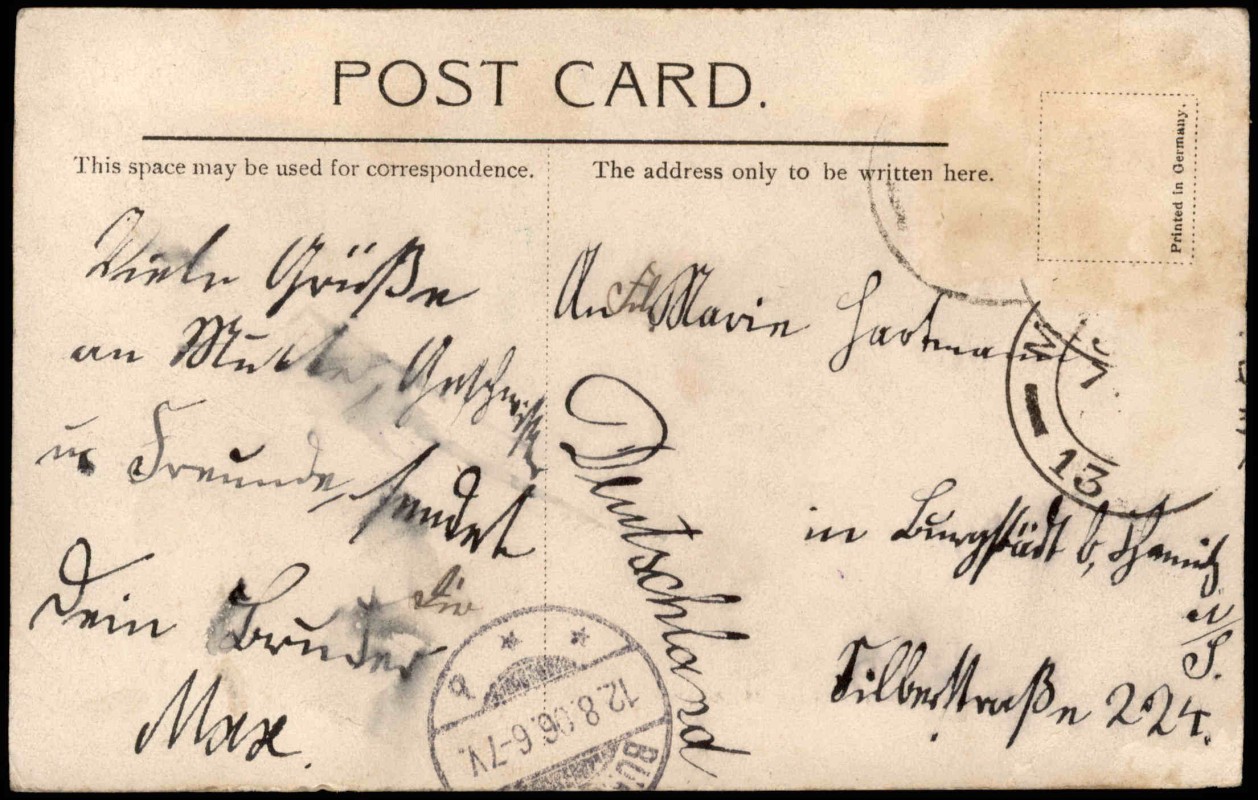 POST CARD.
This space may be used for correspondence.
The address only to be written here.
Printed in Germany.
Viele Grüße
an Mutter, Geschwister
u. Freunde, sendet
Dein Bruder
Dir
Max.
An Frl Marie Hartmann
Deutschland
in Burgstädt b, Chemnitz
i/S.
Silberstraße 224.
12.8.06.6-7V.
BUR
13